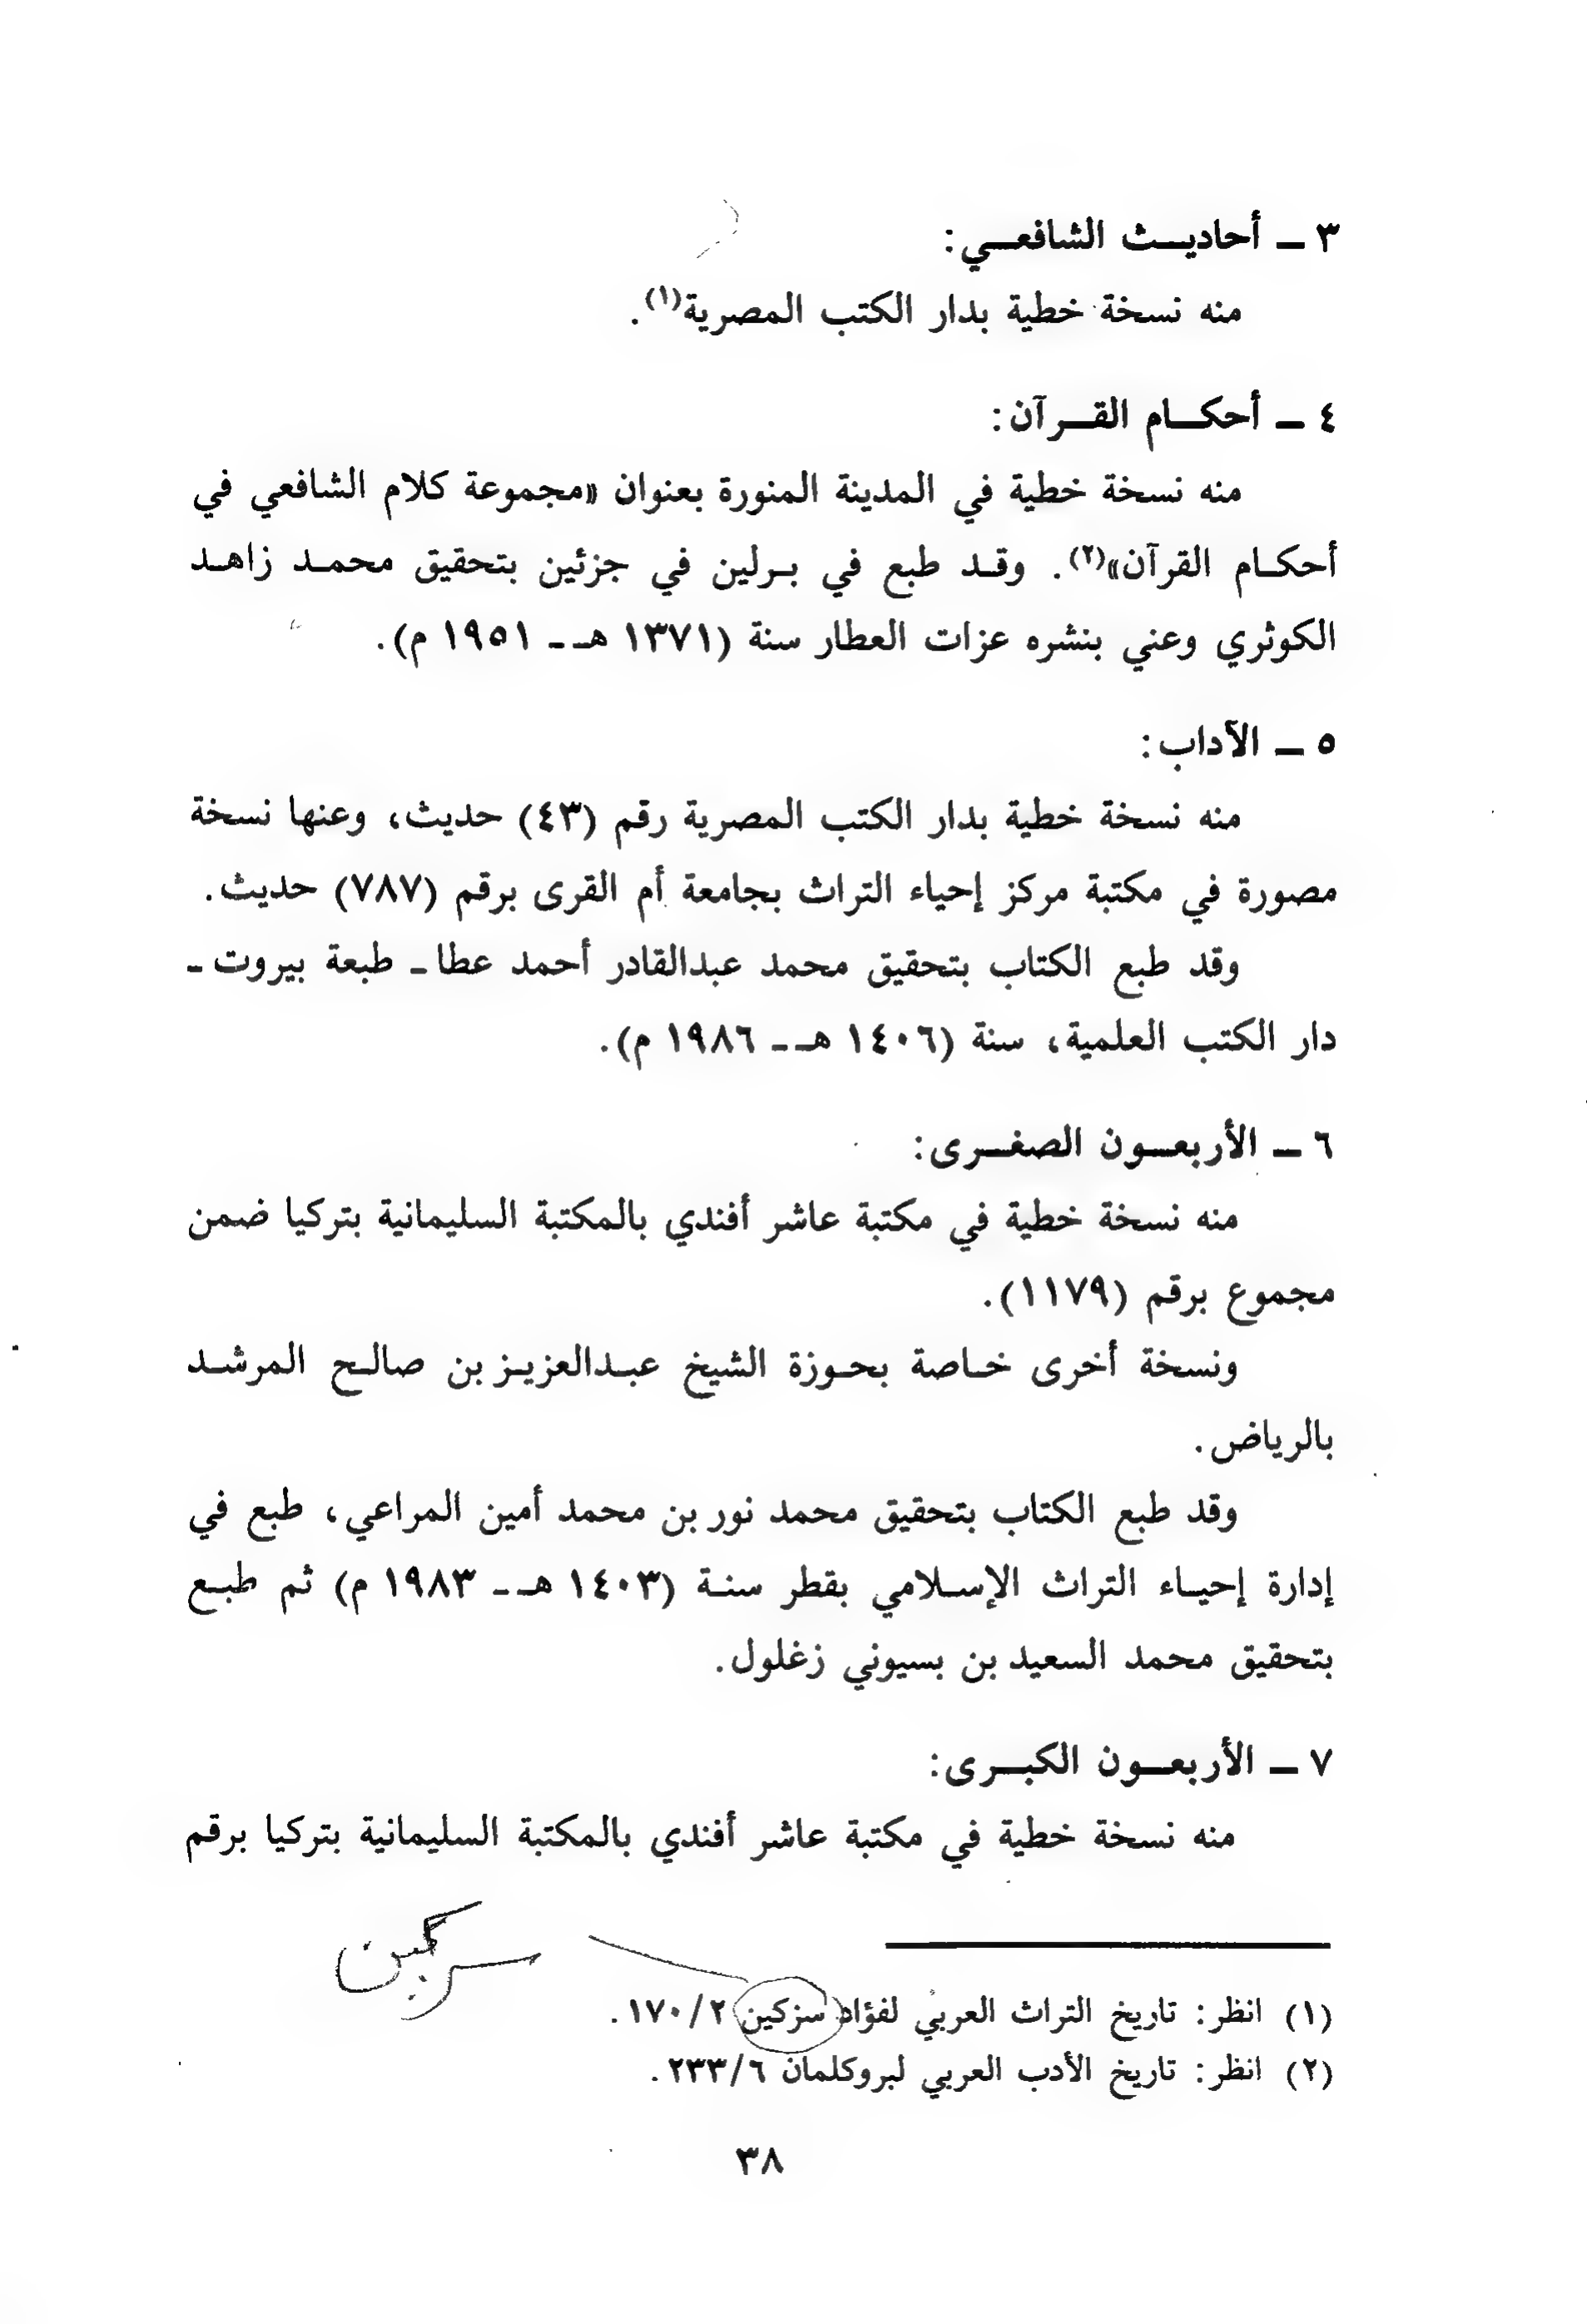 ٣ ــ أحاديث الشافعي:
منه نسخة خطية بدار الكتب المصرية(١).
٤ ــ أحكام القرآن:
منه نسخة خطية في المدينة المنورة بعنوان «مجموعة كلام الشافعي في
أحكام القرآن»(٢). وقد طبع في برلين في جزئين بتحقيق محمد زاهد
الكوثري وعني بنشره عزات العطار سنة (١٣٧١ هـ ـ ١٩٥١ م).
٥ ــ الآداب:
منه نسخة خطية بدار الكتب المصرية رقم (٤٣) حديث، وعنها نسخة
مصورة في مكتبة مركز إحياء التراث بجامعة أم القرى برقم (٧٨٧) حديث.
وقد طبع الكتاب بتحقيق محمد عبدالقادر أحمد عطا ـ طبعة بيروت ـ
دار الكتب العلمية، سنة (١٤٠٦ هـ ـ ١٩٨٦ م).
٦ ــ الأربعون الصغرى:
منه نسخة خطية في مكتبة عاشر أفندي بالمكتبة السليمانية بتركيا ضمن
مجموع برقم (١١٧٩).
ونسخة أخرى خاصة بحوزة الشيخ عبدالعزيز بن صالح المرشد
بالرياض.
وقد طبع الكتاب بتحقيق محمد نور بن محمد أمين المراعي، طبع في
إدارة إحياء التراث الإسلامي بقطر سنة (١٤٠٣ هـ ـ ١٩٨٣ م) ثم طبع
بتحقيق محمد السعيد بن بسيوني زغلول.
٧ ــ الأربعون الكبرى:
منه نسخة خطية في مكتبة عاشر أفندي بالمكتبة السليمانية بتركيا برقم
(١) انظر: تاريخ التراث العربي لفؤاد سزكين ٢/ ١٧٠.
(٢) انظر: تاريخ الأدب العربي لبروكلمان ٦/ ٢٣٣.
٣٨